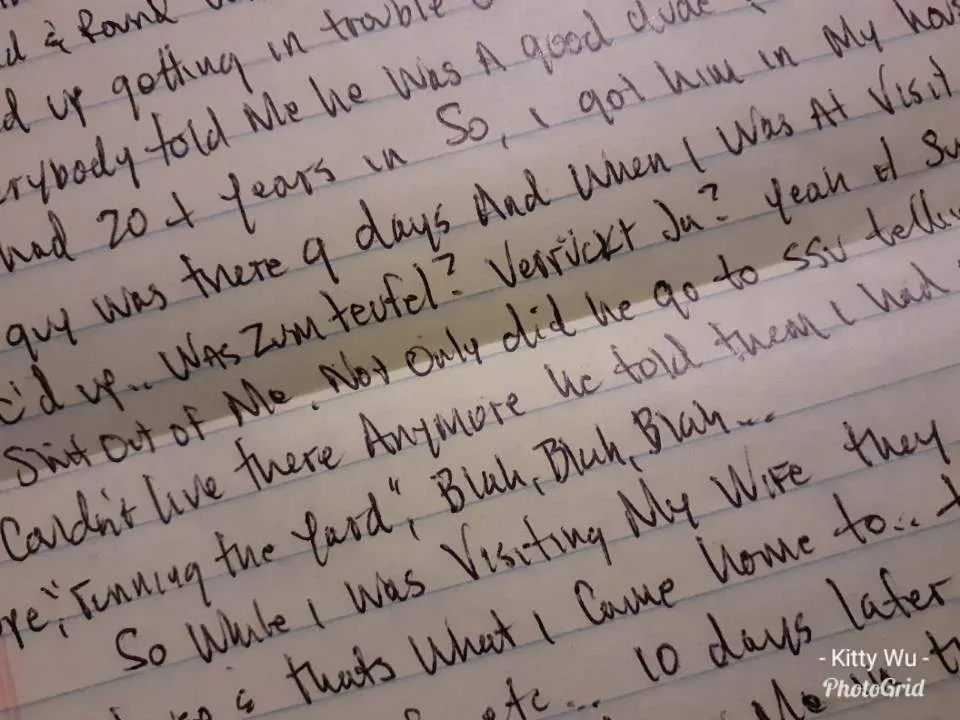 d & Round
d up getting in trouble
erybody told Me he Was A good dude
had 20+ Years in So, i got him in My hous
guy Was there 9 days And When I Was At Visit
c'd up.. WAS ZUM teufel? Verrückt Ja? Yeah it Su
Shit Out of Me. Not Only did he go to SSU tellin
Couldn't live there Anymore he told them I had
ere, "running the Yard", Blah, Blah, Blah...
So While I Was Visiting My Wife they
& thats What I Came home to.. t
etc... 10 days later
Me in t
- Kitty Wu -
PhotoGrid